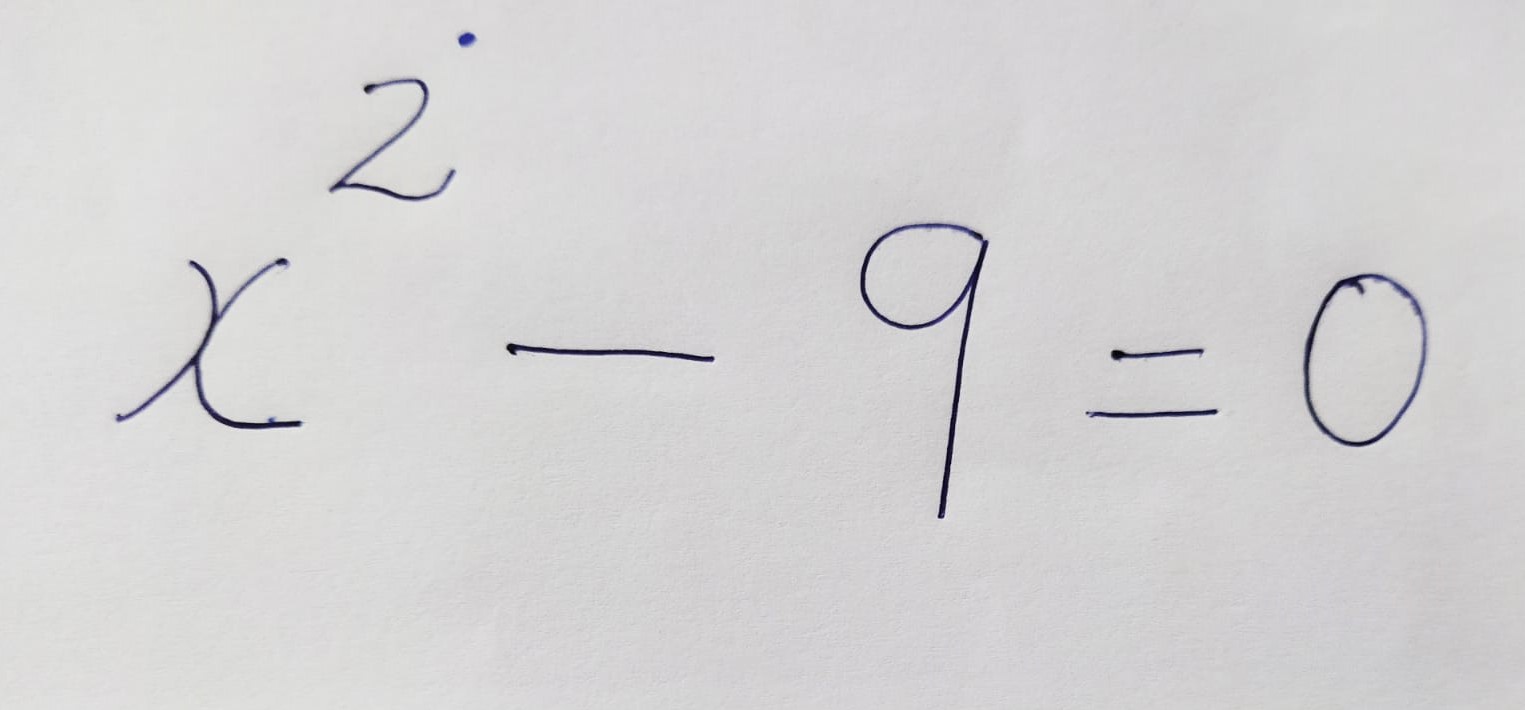 x² − 9 = 0